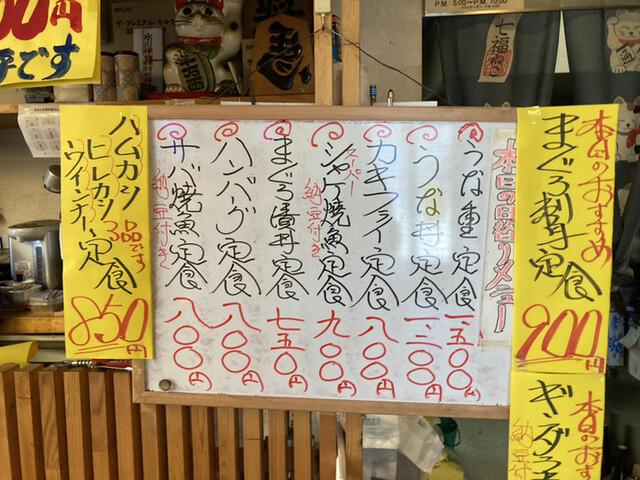 00円
手です
P.M. 5:00〜P.M. 10:00
七福
本日のおすすめ
まぐろ刺身定食
900円
本日のおす
ギンダラ
納豆付
本日の日替りメニュー
うな重定食
一、五〇〇円
うな丼定食
一、三〇〇円
カキフライ定食
八〇〇円
スーパー
シャケ焼魚定食
納豆付き
九〇〇円
まぐろ漬丼定食
七五〇円
ハンバーグ定食
八〇〇円
サバ焼魚定食
納豆付き
八〇〇円
ハムカツ
ヒレカツ
3品です
ウインナー定食
850円